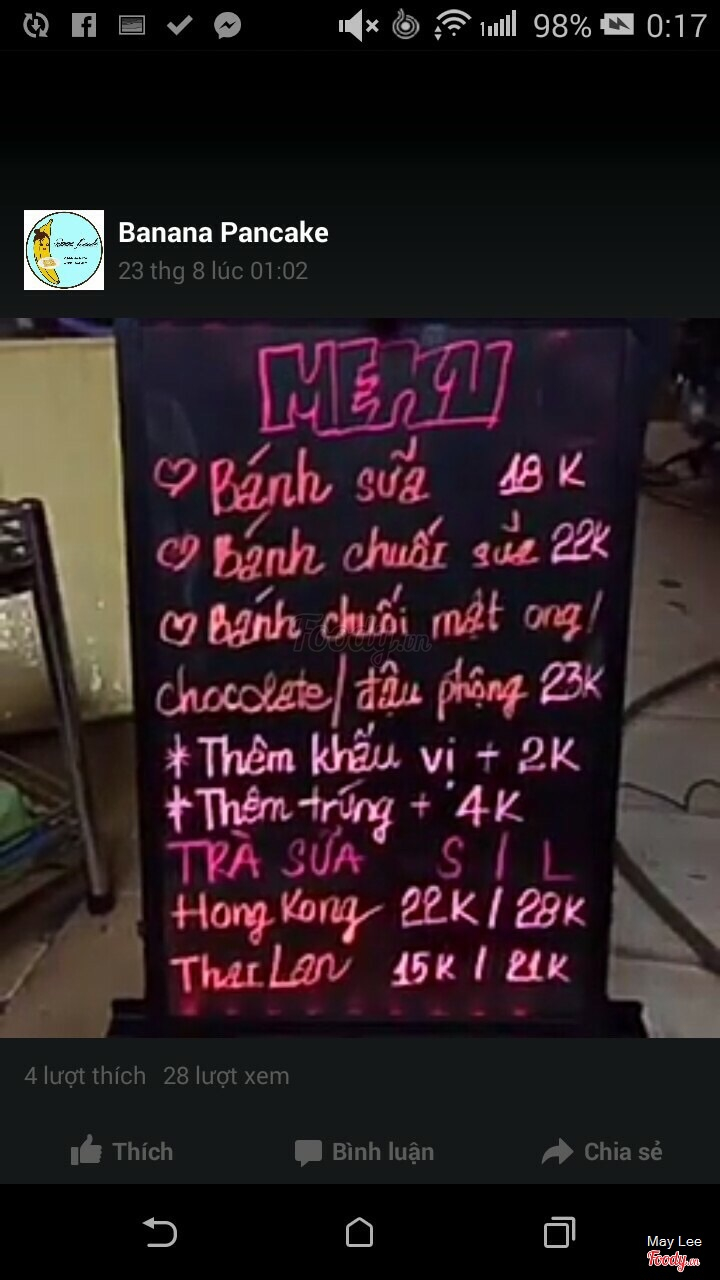 98% 0:17
Banana Pancake
23 thg 8 lúc 01:02
MENU
Bánh sữa 18K
Bánh chuối sữa 22K
Bánh chuối mật ong/
chocolate/ đậu phộng 23K
* Thêm khẩu vị + 2K
* Thêm trứng + 4K
TRÀ SỮA S / L
Hong Kong 22K / 28K
Thai Lan 15K / 21K
Foody.vn
4 lượt thích 28 lượt xem
Thích Bình luận Chia sẻ
May Lee
Foody.vn